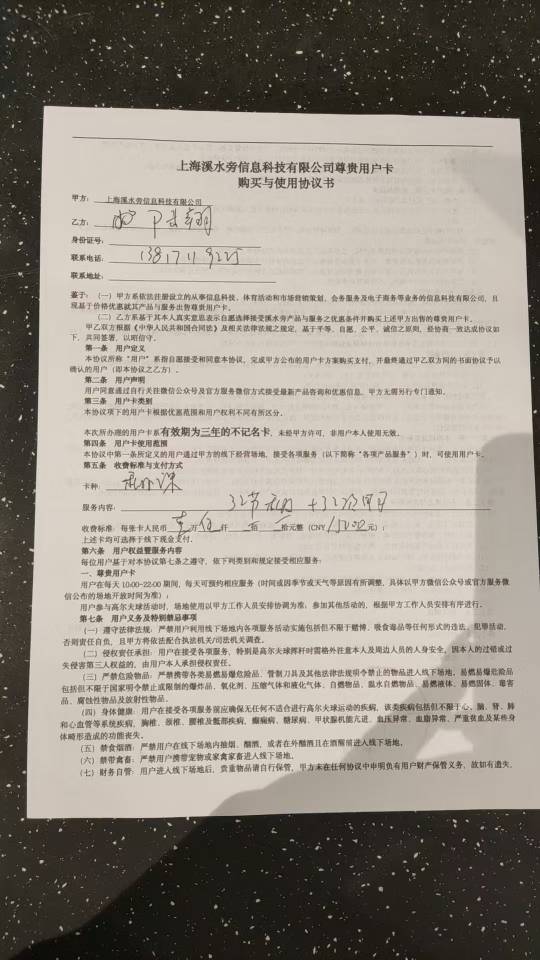 上海溪水旁信息科技有限公司尊贵用户卡
购买与使用协议书
甲方：上海溪水旁信息科技有限公司
乙方：
身份证号：
联系电话：
联系地址：
鉴于：（一）甲方系依法注册设立的从事信息科技、体育活动和市场营销策划、会务服务及电子商务等业务的信息科技有限公司，且
现基于价格优惠就其产品与服务出售尊贵用户卡。
（二）乙方系基于其本人真实意思表示自愿选择接受溪水旁产品与服务之优惠条件并购买上述甲方出售的尊贵用户卡。
甲乙双方根据《中华人民共和国合同法》及相关法律法规之规定，基于平等、自愿、公平、诚信之原则，经协商一致达成协议如
下，共同签署，以昭信守。
第一条 用户定义
本协议所称“用户”系指自愿接受和同意本协议，完成甲方公布的用户卡方案购买支付，并最终通过甲乙双方间的书面协议予以
确认的用户（即本协议之乙方）。
第二条 用户声明
用户同意通过自行关注微信公众号及官方服务微信方式接受最新产品咨询和优惠信息，甲方无需另行专门通知。
第三条 用户卡类别
本协议项下的用户卡根据优惠范围和用户权利不同有所区分。
本次所办理的用户卡系有效期为三年的不记名卡，未经甲方许可，非用户本人使用无效。
第四条 用户卡使用范围
本协议中第一条所定义的用户通过甲方的线下经营场地，接受各项服务（以下简称“各项产品服务”）时，可使用用户卡。
第五条 收费标准与支付方式
卡种：
服务内容：32节
收费标准：每张卡人民币 壹 万 伍 仟 佰 拾元整（CNY 15000 元）；
上述卡均可选择于线下现金支付。
第六条 用户权益暨服务内容
每位用户基于对本协议第七条之遵守，依下列类别和规定接受相应服务：
一、尊贵用户卡
用户在每天 10:00-22:00 期间，每天可预约相应服务（时间或因季节或天气等原因有所调整，具体以甲方微信公众号或官方服务微
信公布的场地开放时间为准）；
用户参与高尔夫球活动时，场地使用以甲方工作人员安排协调为准，参加其他活动的，根据甲方工作人员安排有序进行。
第七条 用户义务及特别禁忌事项
（一）遵守法律法规：严禁用户利用线下场地内各项服务活动实施包括但不限于赌博、吸食毒品等任何形式的违法、犯罪活动，
否则责任自负，且甲方将依法配合执法机关/司法机关调查。
（二）侵权责任承担：用户在接受各项服务，特别是高尔夫球挥杆时需格外注意本人及周边人员的人身安全，因本人的过错或过
失侵害第三人权益的，由用户本人承担侵权责任。
（三）严禁危险物品：严禁携带各类易燃易爆危险品、管制刀具及其他法律法规明令禁止的物品进入线下场地，易燃易爆危险品
包括但不限于国家明令禁止或限制的爆炸品、氧化剂、压缩气体和液化气体、自燃物品、遇水自燃物品、易燃液体、易燃固体、毒害
品、腐蚀性物品及放射性物品。
（四）身体健康：用户在接受各项服务前应确保无任何不适合进行高尔夫球运动的疾病，该类疾病包括但不限于心、脑、肾、肺
和心血管等系统疾病，胸椎、颈椎、腰椎及骶部疾病，癫痫病、糖尿病、甲状腺机能亢进、血压异常、血脂异常、严重贫血及某些身
体畸形造成的功能丧失。
（五）禁食烟酒：严禁用户在线下场地内抽烟、酗酒，或者在外酗酒且在酒醒前进入线下场地。
（六）禁带禽畜：严禁用户携带宠物或家禽家畜进入线下场地。
（七）财务自管：用户进入线下场地后，贵重物品请自行保管，甲方未在任何协议中申明负有用户财产保管义务，故如有遗失、